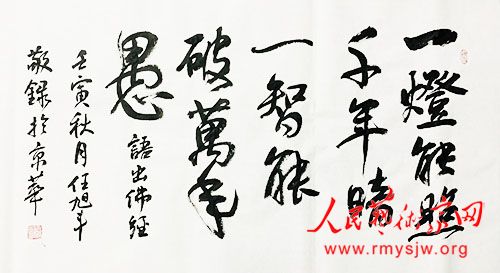 一燈能照
千年暗
一智能
破萬年
愚
語出佛經
壬寅秋月任旭
敬錄於京華
人民藝術家网
www.rmysjw.org